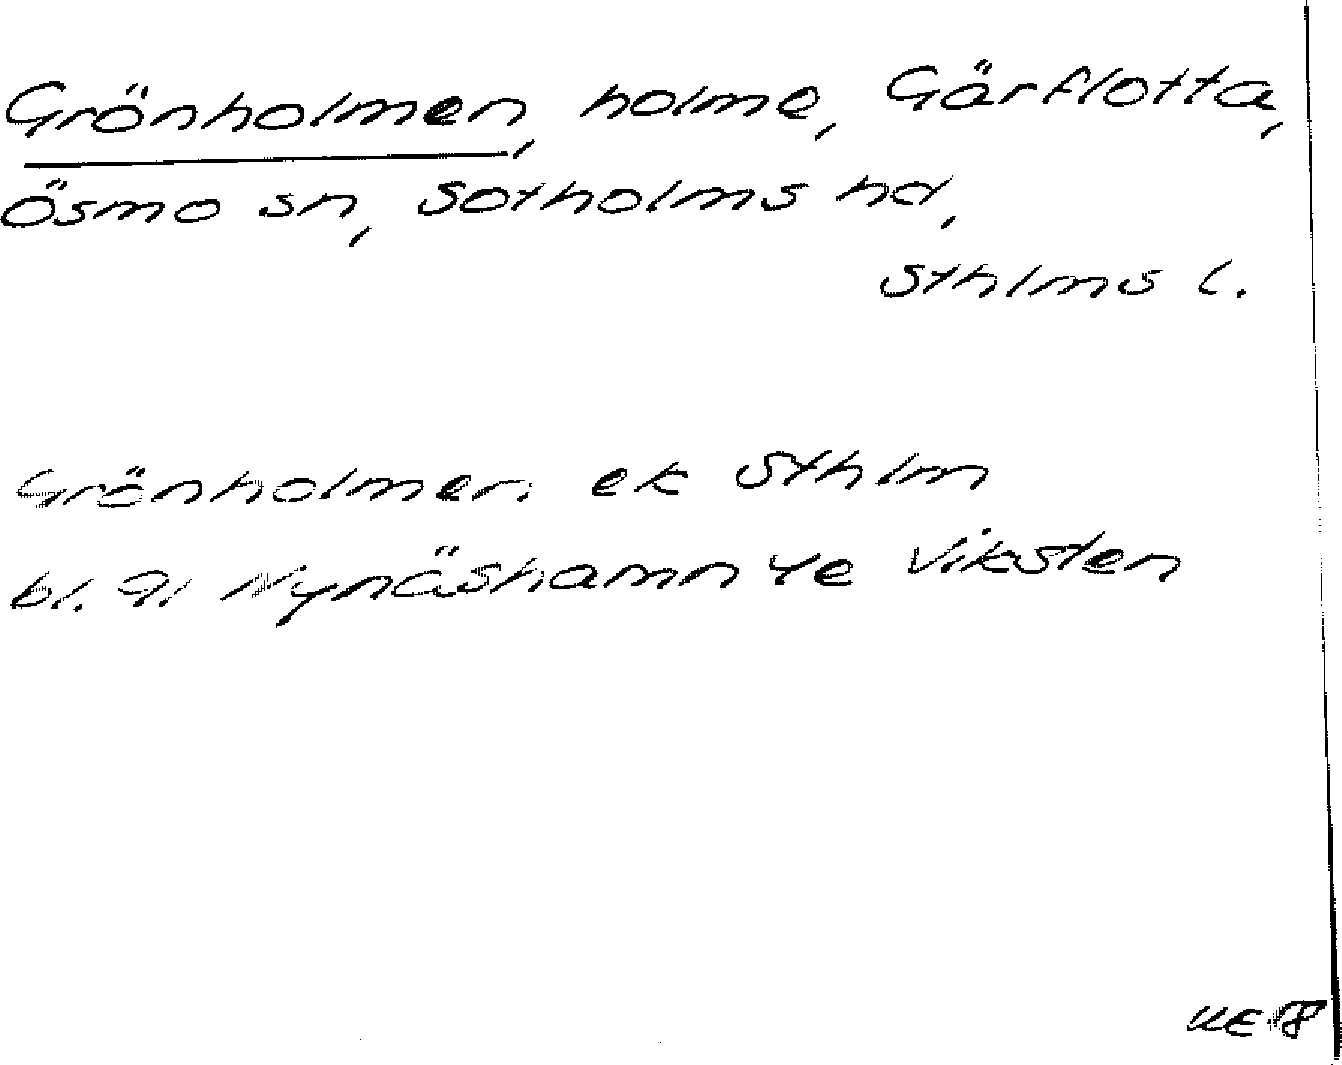 Grönholmen, holme, Gårflotta,
Ösmo sn, Sotholms hd,
Sthlms l.
Grönholmen ek Sthlm
bl. 91 Nynäshamn 4e Viksten